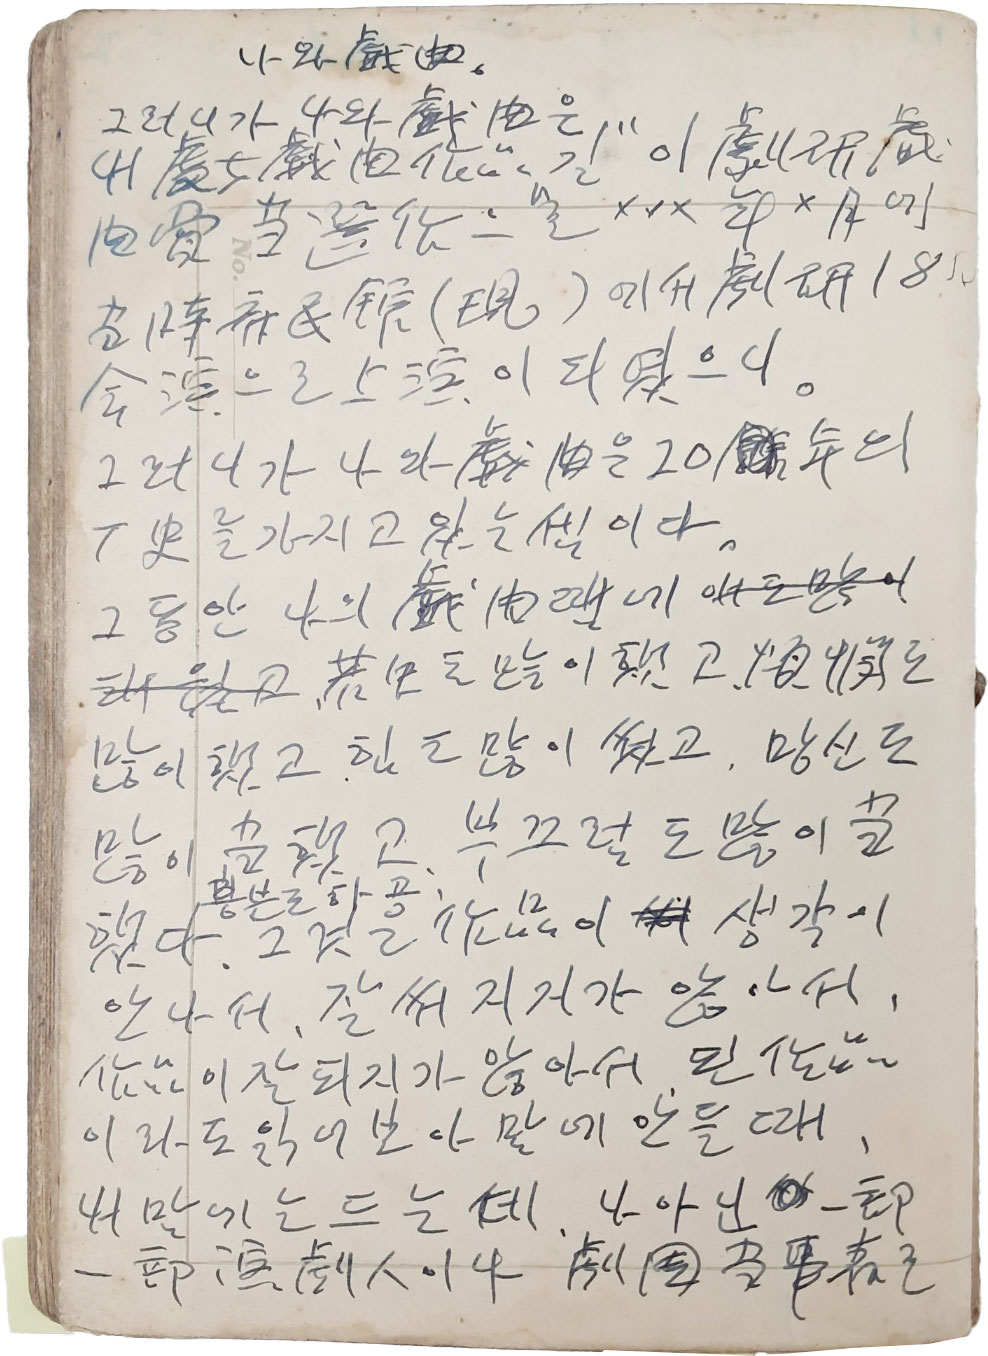 나와 戲曲。
그러니가 나와 戲曲은
내 處女戲曲作品 길" 이 劇硏戲
曲賞 当選作으로 ××× 年 ×月에
当時 府民館(現。)에서 劇硏 18
会演으로 上演이 되였으니。
그러니가 나와 戲曲은 20年의
丁史를 가지고 있는 셈이다。
그동안 나의 戲曲때문에 애도 많이
태웠고 苦史도 많이 했고、煩悶도
많이 했고 힘도 많이 썼고、망신도
많이 当했고、부끄럼도 많이 当
흥분도 하고、
했다、그것은 作品이 생각이
안나서、잘 써지지가 않아서、
作品이 잘 되지가 않아서、된 作品
이라도 읽어보아 맘에 안들때、
내 맘에는 드는데、나 아닌 一部
一部 演劇人이나 劇団 当事者로